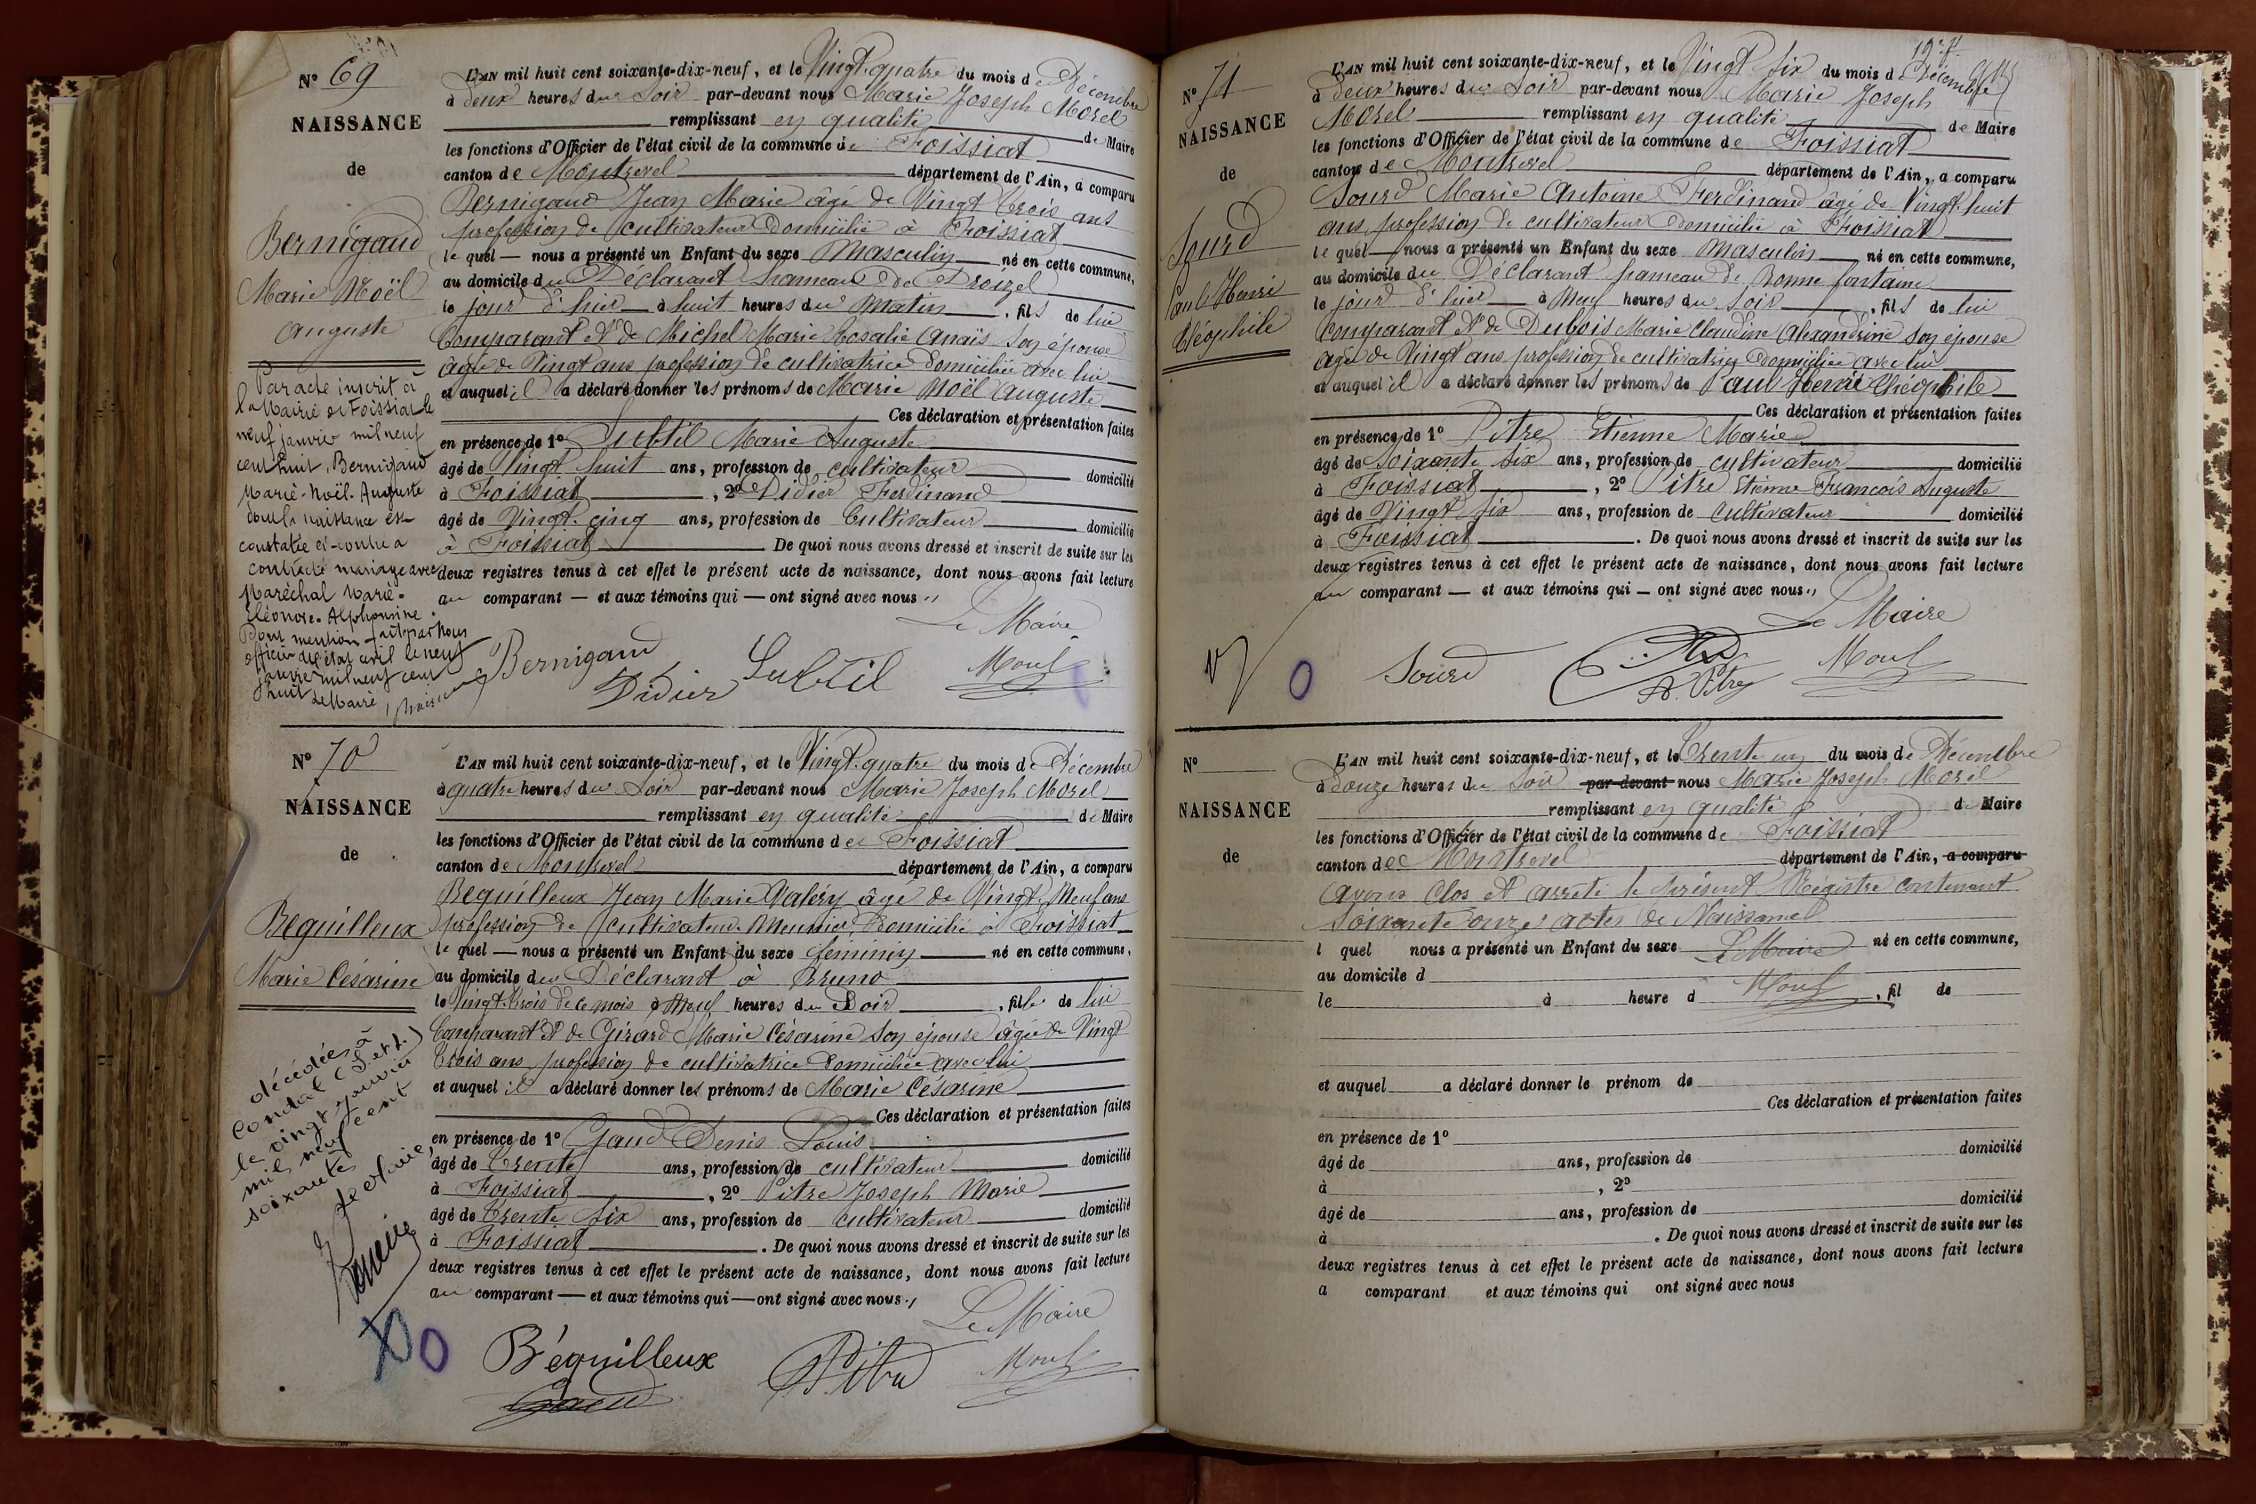 N° 69
NAISSANCE
de
Bernigaud
Marie Noël
Auguste
Par acte inscrit à
la Mairie de Foissiat le
neuf janvier mil neuf
cent huit, Bernigaud
Marie-Noël-Auguste
dont la naissance est
constatée ci-contre a
contracté mariage avec
Maréchal Marie-
Éléonore-Alphonsine.
Pour mention faite par nous
officier de l'état civil le neuf
janvier mil neuf cent
huit Le Maire
L'AN mil huit cent soixante-dix-neuf, et le Vingt-quatre du mois de Décembre
à deux heures du Soir par-devant nous Marie Joseph Morel
remplissant en qualité de Maire
les fonctions d'Officier de l'état civil de la commune de Foissiat
canton de Montrevel département de l'Ain, a comparu
Bernigaud Jean Marie âgé de Vingt trois ans
profession de cultivateur domicilié à Foissiat
le quel — nous a présenté un Enfant du sexe Masculin né en cette commune,
au domicile du Déclarant hameau de Droizel
le jour d'hier à huit heures du matin, fils de lui
Comparant et de Michel Marie Rosalie Anaïs son épouse
âgée de Vingt ans profession de cultivatrice domiciliée avec lui
et auquel il a déclaré donner les prénoms de Marie Noël Auguste
Ces déclaration et présentation faites
en présence de 1° Subtil Marie Auguste
âgé de Vingt huit ans, profession de cultivateur domicilié
à Foissiat, 2° Didier Ferdinand
âgé de Vingt-cinq ans, profession de Cultivateur domicilié
à Foissiat. De quoi nous avons dressé et inscrit de suite sur les
deux registres tenus à cet effet le présent acte de naissance, dont nous avons fait lecture
au comparant — et aux témoins qui — ont signé avec nous
Le Maire
Bernigaud
Didier
Subtil
Morel
N° 70
NAISSANCE
de
Bequilleux
Marie Césarine
décédée à
Condal (S. et L.)
le vingt janvier
mil neuf cent
soixante
Le Maire,
L'AN mil huit cent soixante-dix-neuf, et le Vingt-quatre du mois de Décembre
à quatre heures du Soir par-devant nous Marie Joseph Morel
remplissant en qualité de Maire
les fonctions d'Officier de l'état civil de la commune de Foissiat
canton de Montrevel département de l'Ain, a comparu
Bequilleux Jean Marie Valéry âgé de Vingt Neuf ans
profession de cultivateur Meunier Domicilié à Foissiat
le quel — nous a présenté un Enfant du sexe féminin né en cette commune,
au domicile du Déclarant à Bruno
le Vingt-trois de ce mois à Neuf heures du Soir, fille de lui
Comparant et de Girard Marie Césarine son épouse âgée de Vingt
trois ans profession de cultivatrice domiciliée avec lui
et auquel il a déclaré donner les prénoms de Marie Césarine
Ces déclaration et présentation faites
en présence de 1° Gaud Denis Louis
âgé de Trente ans, profession de cultivateur domicilié
à Foissiat, 2° Pitre Joseph Marie
âgé de Trente Six ans, profession de cultivateur domicilié
à Foissiat. De quoi nous avons dressé et inscrit de suite sur les
deux registres tenus à cet effet le présent acte de naissance, dont nous avons fait lecture
au comparant — et aux témoins qui — ont signé avec nous
Le Maire
Béquilleux
Gaud
Pitre
Morel
N° 71
NAISSANCE
de
Sourd
Paul Henri
Théophile
L'AN mil huit cent soixante-dix-neuf, et le Vingt Six du mois de Décembre
à deux heures du Soir par-devant nous Marie Joseph
Morel remplissant en qualité de Maire
les fonctions d'Officier de l'état civil de la commune de Foissiat
canton de Montrevel département de l'Ain, a comparu
Sourd Marie Antoine Ferdinand âgé de Vingt-huit
ans profession de cultivateur Domicilié à Foissiat
le quel — nous a présenté un Enfant du sexe Masculin né en cette commune,
au domicile du Déclarant hameau de Bonne fontaine
le jour d'hier à Neuf heures du Soir, fils de lui
Comparant et de Dubois Marie Claudine Alexandrine son épouse
âgée de Vingt ans profession de cultivatrice Domiciliée avec lui
et auquel il a déclaré donner les prénoms de Paul Henri Théophile
Ces déclaration et présentation faites
en présence de 1° Pitre Etienne Marie
âgé de Soixante Six ans, profession de cultivateur domicilié
à Foissiat, 2° Pitre Etienne François Auguste
âgé de Vingt Six ans, profession de cultivateur domicilié
à Foissiat. De quoi nous avons dressé et inscrit de suite sur les
deux registres tenus à cet effet le présent acte de naissance, dont nous avons fait lecture
au comparant — et aux témoins qui — ont signé avec nous
Le Maire
Sourd
A. Pitre
Morel
N°
NAISSANCE
de
L'AN mil huit cent soixante-dix-neuf, et le Trente un du mois de Décembre
à douze heures du Soir par-devant nous Marie Joseph Morel
remplissant en qualité de Maire
les fonctions d'Officier de l'état civil de la commune de Foissiat
canton de Montrevel département de l'Ain, a comparu
avons Clos et arrêté le présent Régistre Contenant
Soixante onze actes de Naissance
l quel nous a présenté un Enfant du sexe Le Maire né en cette commune,
au domicile d
le à heure d Morel, fil de
et auquel a déclaré donner le prénom de
Ces déclaration et présentation faites
en présence de 1°
âgé de ans, profession de domicilié
à , 2°
âgé de ans, profession de domicilié
à . De quoi nous avons dressé et inscrit de suite sur les
deux registres tenus à cet effet le présent acte de naissance, dont nous avons fait lecture
a comparant et aux témoins qui ont signé avec nous